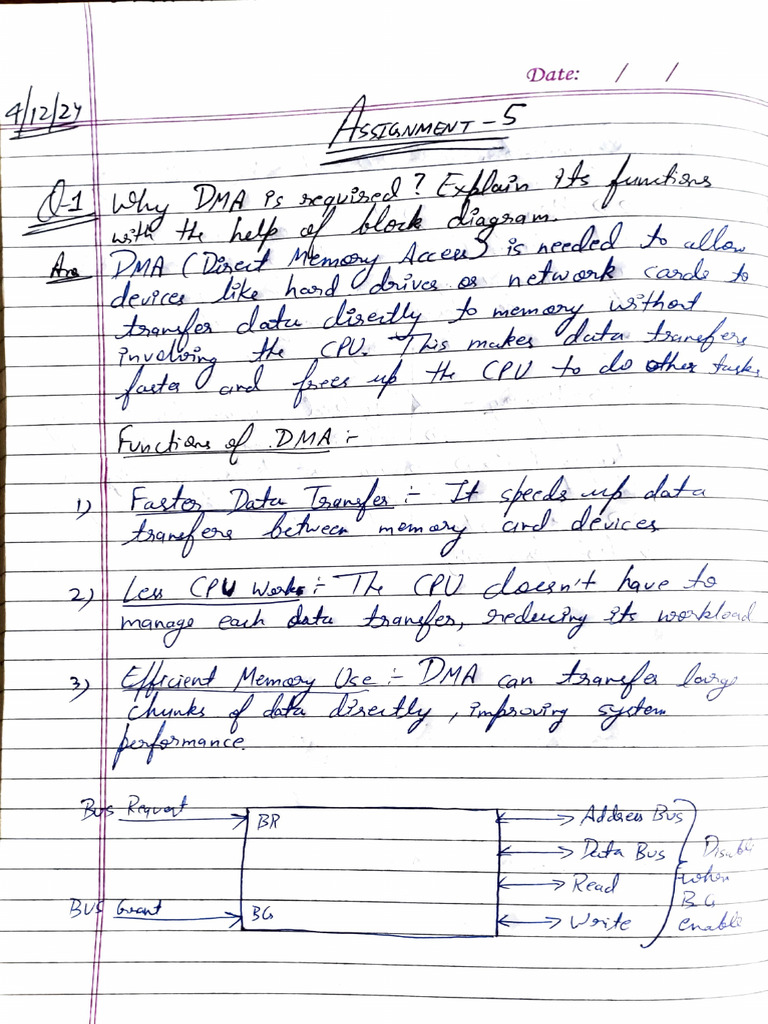 Date: / /
4/12/24
ASSIGNMENT - 5
Q-1 Why DMA is required? Explain its functions
with the help of block diagram.
Ans DMA (Direct Memory Access) is needed to allow
devices like hard drives or network cards to
transfer data directly to memory without
involving the CPU. This makes data transfers
faster and frees up the CPU to do other tasks
Functions of DMA :-
1) Faster Data Transfer :- It speeds up data
transfers between memory and devices.
2) Less CPU Work :- The CPU doesn't have to
manage each data transfer, reducing its workload
3) Efficient Memory Use :- DMA can transfer large
chunks of data directly, improving system
performance.
Bus Request BR Address Bus
Data Bus Disable
Read when
BUS Grant BG Write BG
enable